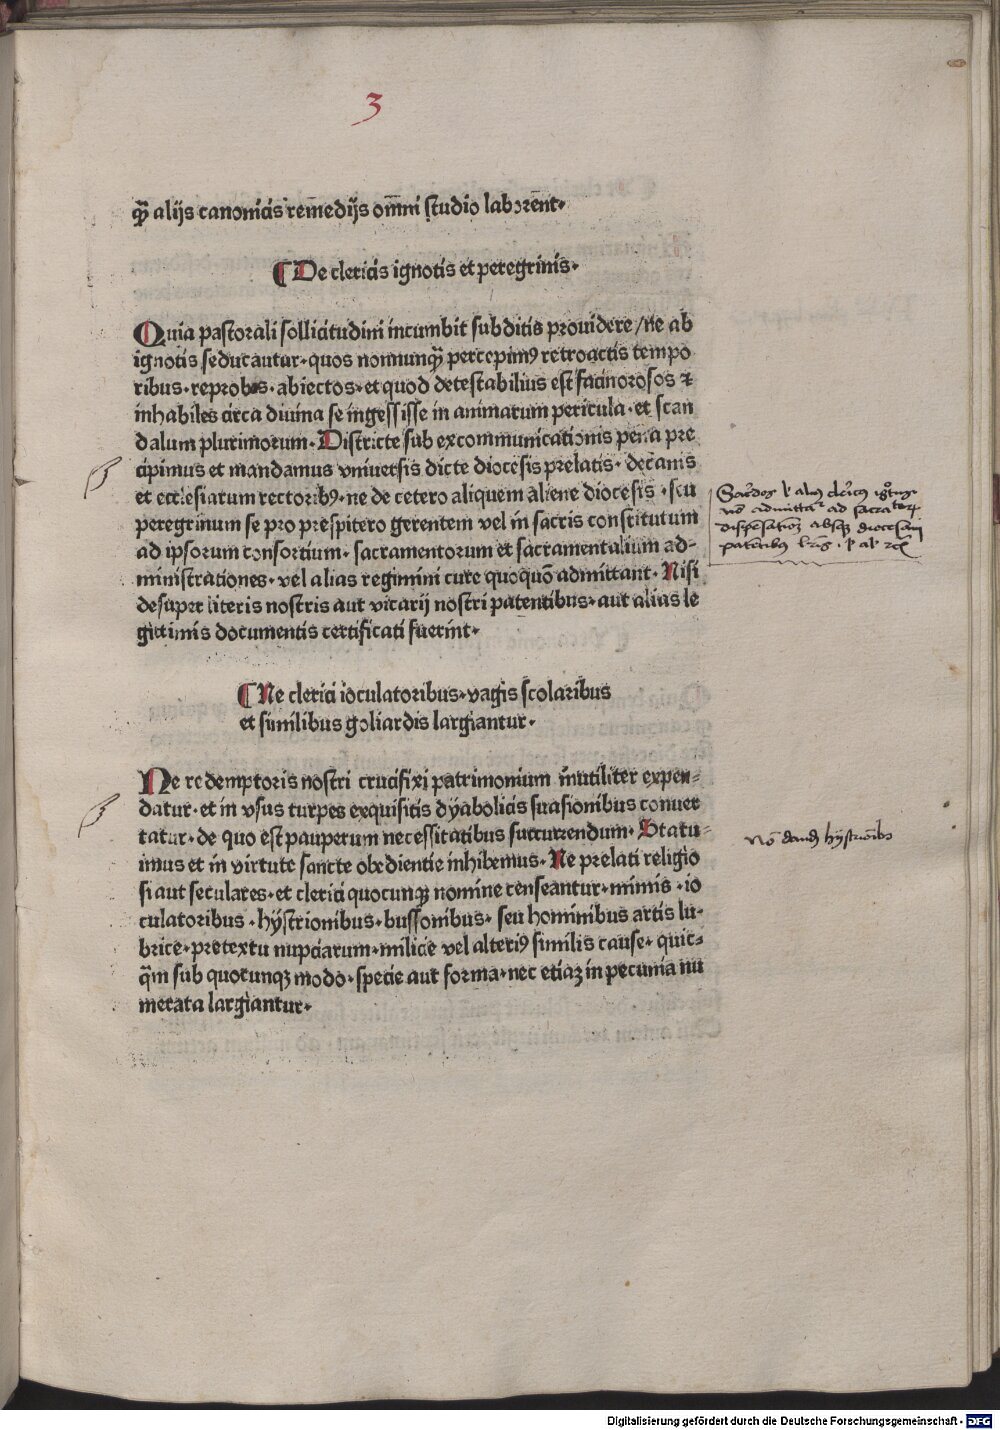 3
qȝ alijs canonicis rem̄edijs om̄ni studio laborēnt·
¶ De clericis ignotis et peregrinis·
Quia pastorali sollicitudini incumbit subditis prouidere/ne ab
ignotis seducantur·quos nonnunqȝ percepimꝰ retroactis tempo
ribus·reprobos·abiectos·et quod detestabilius est facinorosos ⁊
inhabiles circa diuina se ingessisse in animarum pericula·et scan
dalum plurimorum·Districte sub excommunicationis pena pre
cipimus et mandamus vniuersis dicte diocesis prelatis·decanis
et ecclesiarum rectoribꝰ·ne de cetero aliquem aliene diocesis·seu
peregrinum se pro prespitero gerentem vel in sacris constitutum
ad ipsorum consortium·sacramentorum et sacramentalium ad-
ministrationes·vel alias regimini cure quoquō admittant·Nisi
desuper literis nostris aut vicarij nostri patentibus·aut alias le
gittimis documentis certificati fuerint·
Sacērdos l' alius clēricus ignotus
nō admittatr ad sacratorꝝ
dispēsationē absqȝ diocesani
patentibus lr̄is
¶ Ne clerici ioculatoribus·vagis scolaribus
et similibus goliardis largiantur·
Ne redemptoris nostri crucifixi patrimonium inutiliter expen-
datur·et in vsus turpes exquisitis dyabolicis suasionibus conuer
tatur·de quo est pauperum necessitatibus succurrendum·Statu-
imus et in virtute sancte obedientie inhibemus·Ne prelati religio
si aut seculares·et clerici quocunqȝ nomine censeantur·mimis·io
culatoribus·hystrionibus·buffonibus·seu hominibus artis lu-
brice·pretextu nupciarum·milicie vel alteriꝰ similis cause·quic-
qȝm sub quocunqȝ modo·specie aut forma·nec etiaȝ in pecunia nu
merata largiantur·
nō dandū hystriōnibꝰ
Digitalisierung gefördert durch die Deutsche Forschungsgemeinschaft - DFG